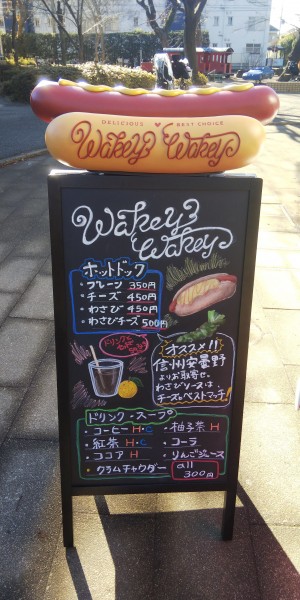 DELICIOUS ♥ BEST CHOICE
Wakey Wakey
Wakey
Wakey
ホットドック
・プレーン 350円
・チーズ 450円
・わさび 450円
・わさびチーズ 500円
オススメ!!
信州安曇野
よりお取寄せ。
わさびソースは
チーズとベストマッチ!
ドリンク・スープ
・コーヒー H・C
・紅茶 H・C
・ココア H
・クラムチャウダー
・柚子茶 H
・コーラ
・りんごジュース
all
300円